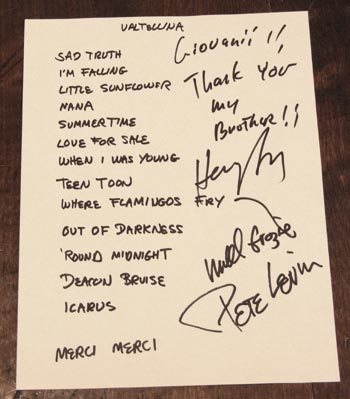 VALTELLINA
SAD TRUTH
I'M FALLING
LITTLE SUNFLOWER
NANA
SUMMERTIME
LOVE FOR SALE
WHEN I WAS YOUNG
TEEN TOON
WHERE FLAMINGOS FRY
OUT OF DARKNESS
'ROUND MIDNIGHT
DEACON BRUISE
ICARUS
MERCI MERCI
Giovanii!!
Thank You
my
Brother!!
Pete Levin